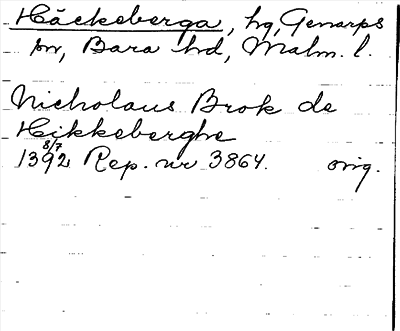 Häckeberga, hg, Genarps
sn, Bara hd, Malm. l.
Nicholaus Brok de
Hikkeberghe
1392 8/7 Rep. nr 3864. orig.